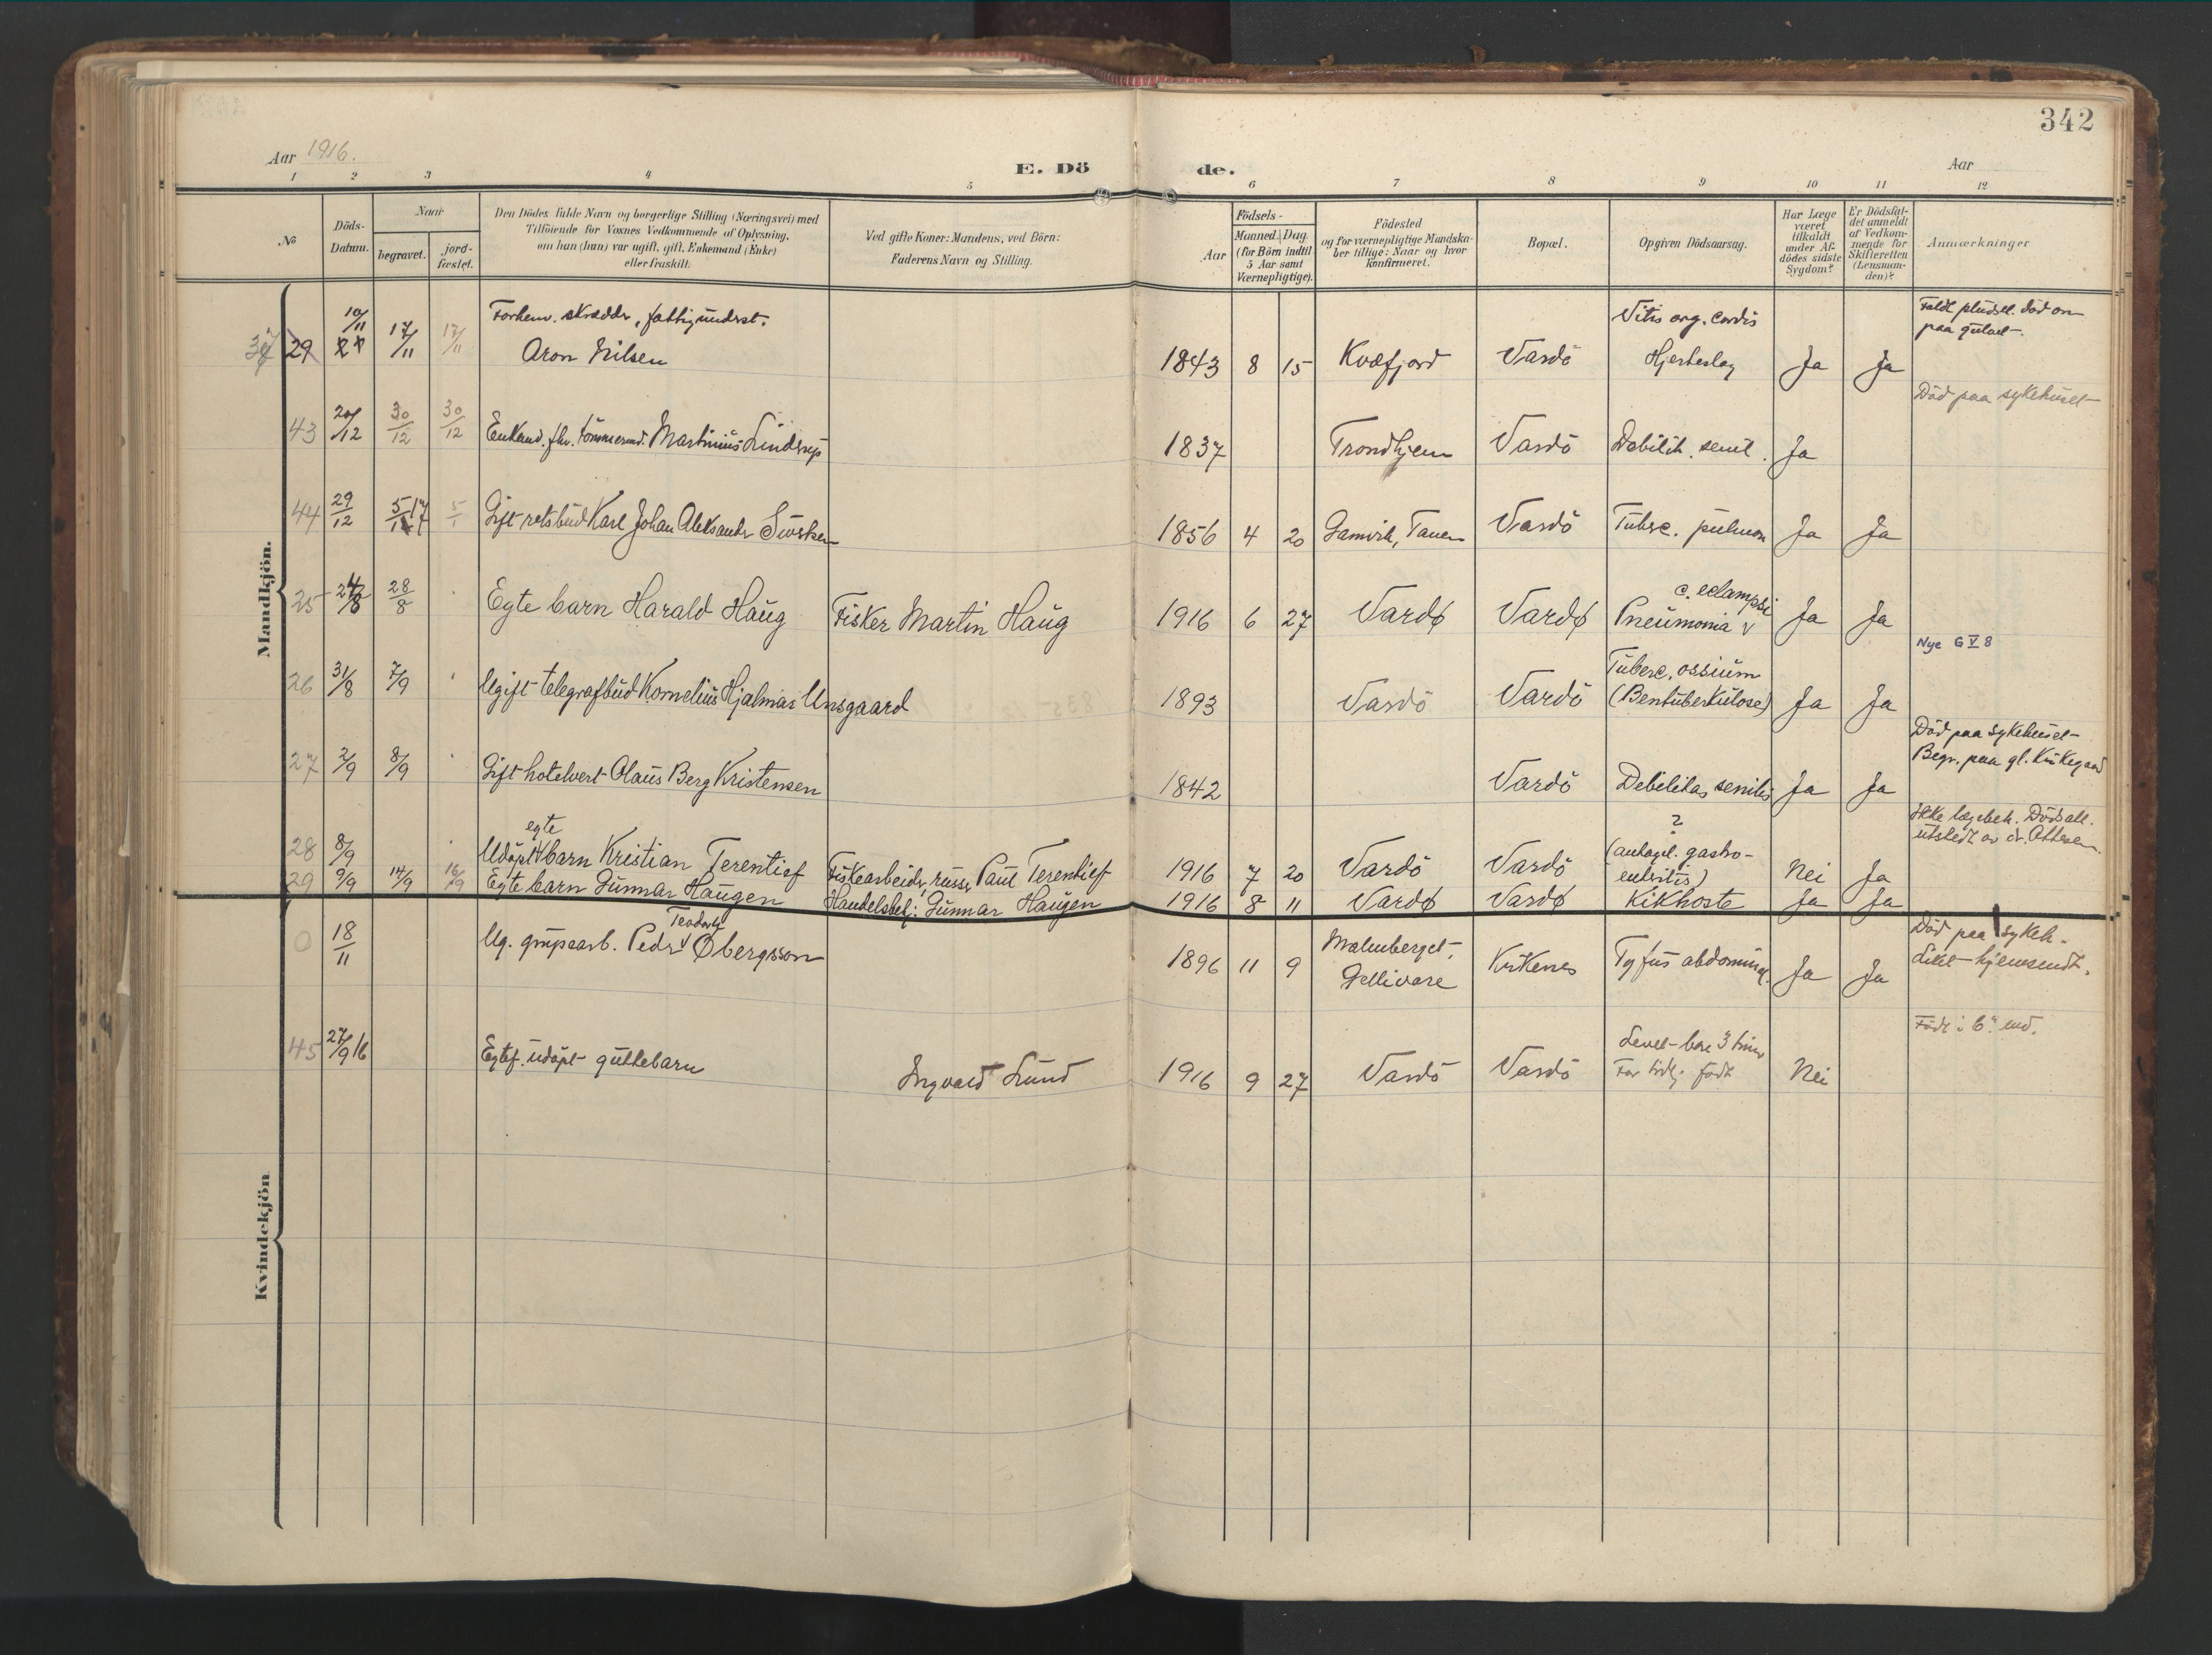 342
Aar 1916.
E. Dö de.
Aar
1 2 3 4 5 6 7 8 9 10 11 12
№
Döds-Datum.
Naar
begravet.
jord-fæstet.
Den Dödes fulde Navn og borgerlige Stilling (Næringsvei) med
Tilföiende for Voxnes Vedkommende af Oplysning,
om han (hun) var ugift, gift, Enkemand (Enke)
eller fraskilt.
Ved gifte Koner: Mandens, ved Börn:
Faderens Navn og Stilling.
Födsels-
Aar
Maaned. Dag.
(for Börn indtil
5 Aar samt
Værnepligtige).
Födested
og for værnepligtige Mandska-
ber tillige: Naar og hvor
konfirmeret.
Bopæl.
Opgiven Dödsaarsag.
Har Læge
været
tilkaldt
under Af-
dödes sidste
Sygdom?
Er Dödsfal-
det anmeldt
af Vedkom-
mende for
Skifteretten
(Lensman-
den)?
Anmærkninger
Mandkjön.
Forhenv. skrædder, fattigunderst.
Vitis org. cordis
Faldt pludsel. død om
paa gulvet.
37 29 10/11 17/11 17/11 Aron Nilsen 1843 8 15 Kvæfjord Vardö Hjerteslag Ja Ja
Död paa sykehuset
43 20/12 30/12 30/12 Enkemd. fhv. tömmermd. Martinius Lindrup 1837 Trondhjem Vardö Debilit. senil. Ja
44 29/12 5/1 17 5/1 Gift retsbud Karl Johan Aleksander Sivertsen 1856 4 20 Gamvik, Tanen Vardö Tuberc. pulmon Ja Ja
c. eclampsi
25 24/8 28/8 Egte barn Harald Haug Fisker Martin Haug 1916 6 27 Vardø Vardø Pneumonia v Ja Ja
Nye G V 8
Tuberc. ossium
26 31/8 7/9 Ugift telegrafbud Kornelius Hjalmar Unsgaard 1893 Vardö Vardö (Bentuberkulose) Ja Ja
Död paa sykehuset
Begr. paa gl. Kirkegaard
27 2/9 8/9 Gift hotelvert Olaus Berg Kristensen 1842 Vardö Debilitas senilis Ja Ja
Ikke lægebeh. Dödsatt.
utstedt av dr.
egte
?
28 8/9 Udöpt barn Kristian Terentief Fiskearbeider, russer Paul Terentief 1916 7 20 Vardö Vardö (antagel. gastro-
enteritis) Nei Ja
29 9/9 14/9 16/9 Egte barn Gunnar Haugen Handelsbet: Gunnar Haugen 1916 8 11 Vardø Vardø Kikhoste Ja Ja
Kvindekjön
0 18/11 Ug. grupearb. Peder Teodor Øbergsson 1896 11 9 Malmberget,
Gellivare Kirkenes Tyfus abdominal. Ja Ja
Död paa sykeh.
Liket hjemsendt.
Født i 6. md.
45 27/9 16 Egtef. udöpt guttebarn Ingvald Lund 1916 9 27 Vardö Vardö Levet bare 3 timer
For tidlig født Nei